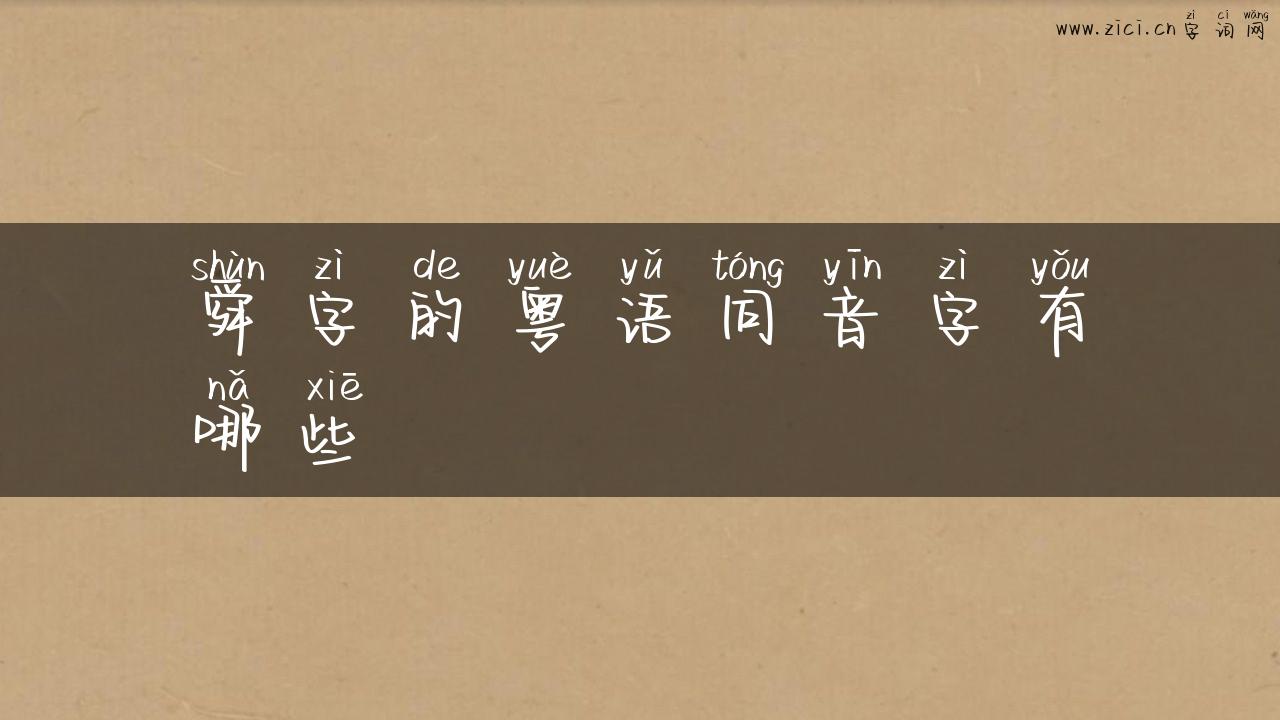 zì cí wǎng
www.zici.cn 字 词 网
shùn zì de yuè yǔ tóng yīn zì yǒu
舜 字 的 粤 语 同 音 字 有
nǎ xiē
哪 些